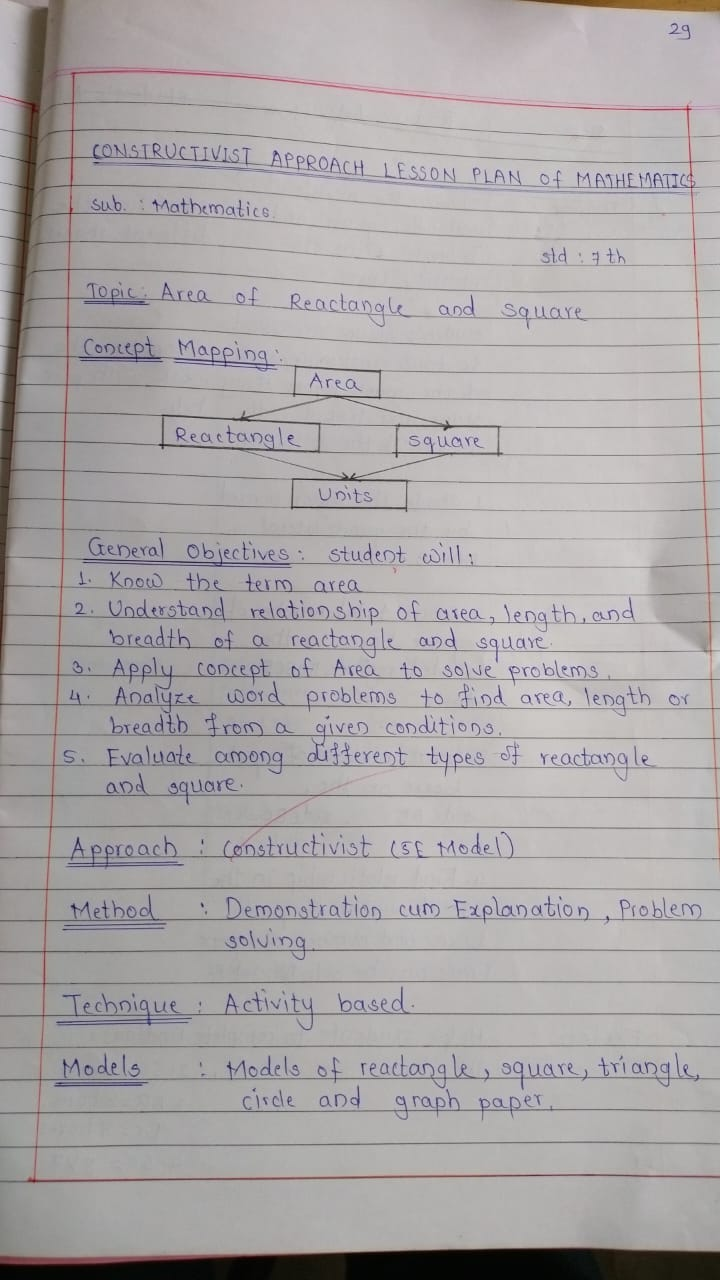 29
CONSTRUCTIVIST APPROACH LESSON PLAN of MATHEMATICS
Sub. : Mathematics.
std : 7th
Topic: Area of Reactangle and square
Concept Mapping:
Area
Reactangle square
Units
General Objectives: student will:
1. Know the term area
2. Understand relationship of area, length, and
breadth of a reactangle and square.
3. Apply concept of Area to solve problems.
4. Analyze word problems to find area, length or
breadth from a given conditions.
5. Evaluate among different types of reactangle
and square.
Approach : Constructivist (5E Model)
Method : Demonstration cum Explanation, Problem
solving.
Technique : Activity based.
Models : Models of reactangle, square, triangle,
circle and graph paper.